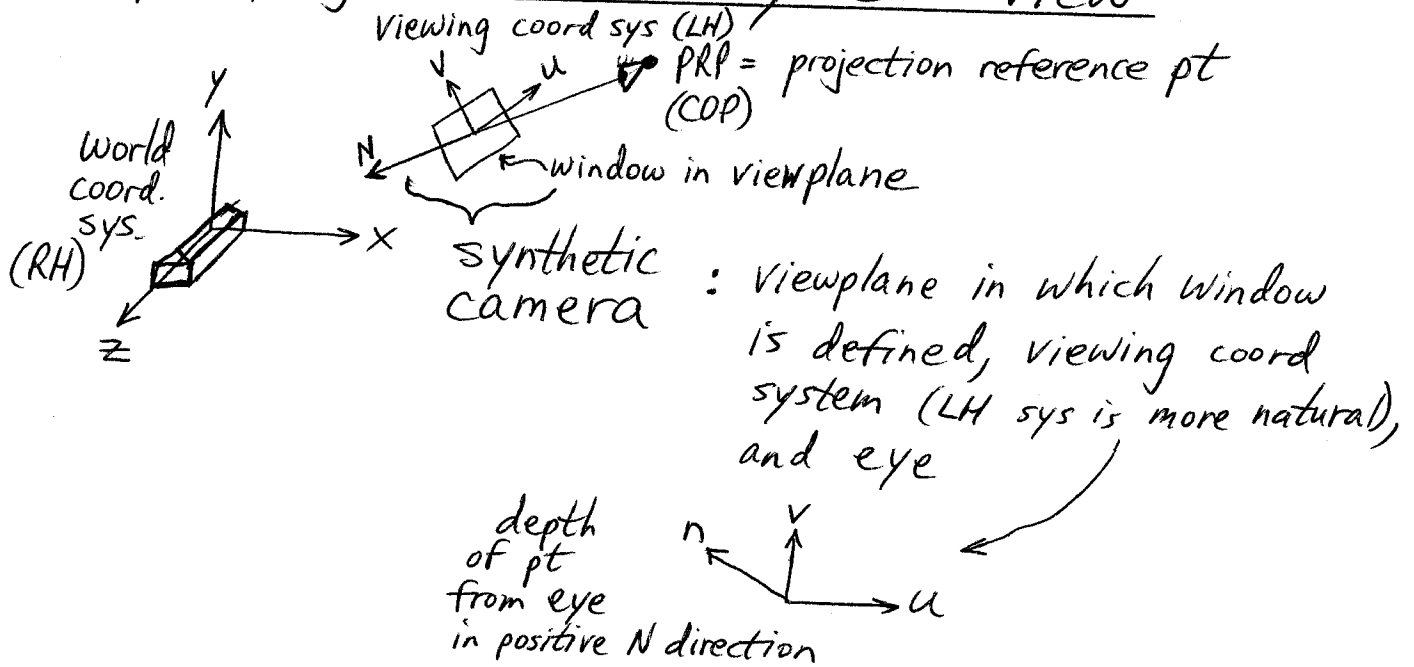 view
viewing coord sys (LH)
V
u
PRP = projection reference pt
(COP)
y
world
coord.
sys.
(RH)
N
window in viewplane
X
Z
synthetic
camera
: viewplane in which window
is defined, viewing coord
system (LH sys is more natural),
and eye
depth
of pt
from eye
in positive N direction
n
v
u